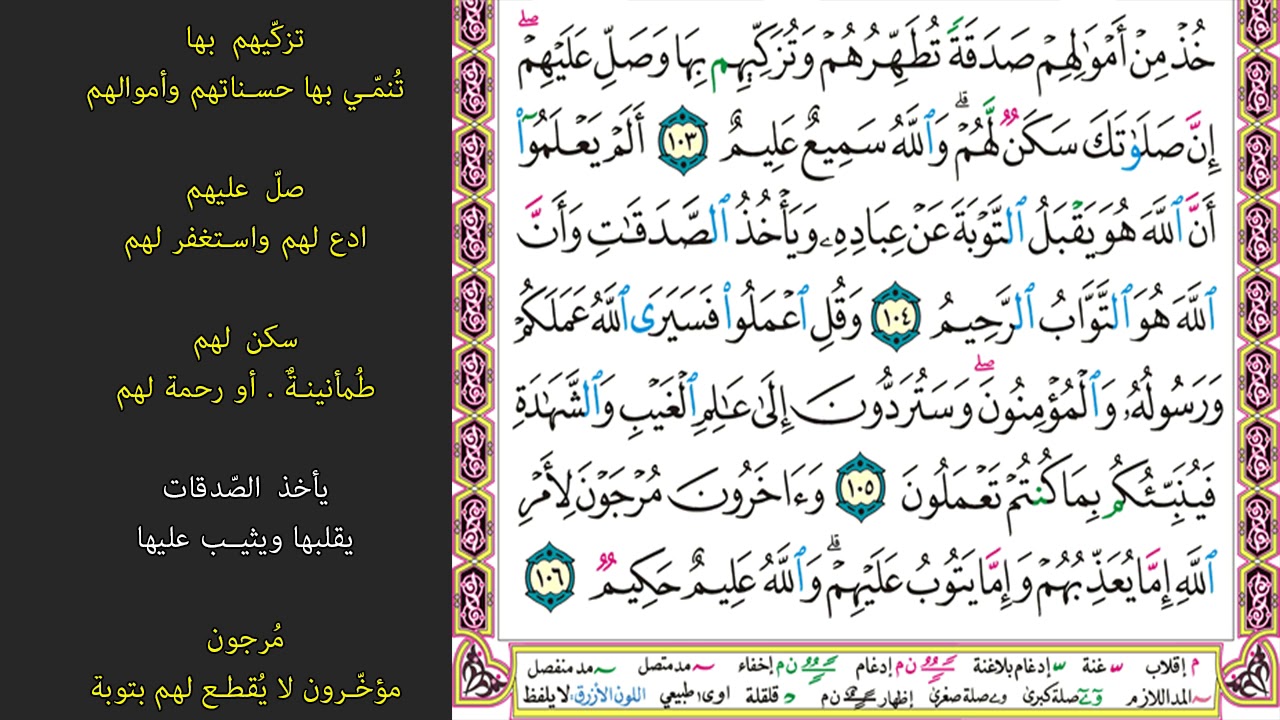 خُذۡ مِنۡ أَمۡوَٰلِهِمۡ صَدَقَةٗ تُطَهِّرُهُمۡ وَتُزَكِّيهِم بِهَا وَصَلِّ عَلَيۡهِمۡۖ
إِنَّ صَلَوٰتَكَ سَكَنٞ لَّهُمۡۗ وَٱللَّهُ سَمِيعٌ عَلِيمٌ ١٠٣ أَلَمۡ يَعۡلَمُوٓاْ
أَنَّ ٱللَّهَ هُوَ يَقۡبَلُ ٱلتَّوۡبَةَ عَنۡ عِبَادِهِۦ وَيَأۡخُذُ ٱلصَّدَقَٰتِ وَأَنَّ
ٱللَّهَ هُوَ ٱلتَّوَّابُ ٱلرَّحِيمُ ١٠٤ وَقُلِ ٱعۡمَلُواْ فَسَيَرَى ٱللَّهُ عَمَلَكُمۡ
وَرَسُولُهُۥ وَٱلۡمُؤۡمِنُونَۖ وَسَتُرَدُّونَ إِلَىٰ عَٰلِمِ ٱلۡغَيۡبِ وَٱلشَّهَٰدَةِ
فَيُنَبِّئُكُم بِمَا كُنتُمۡ تَعۡمَلُونَ ١٠٥ وَءَاخَرُونَ مُرۡجَوۡنَ لِأَمۡرِ
ٱللَّهِ إِمَّا يُعَذِّبُهُمۡ وَإِمَّا يَتُوبُ عَلَيۡهِمۡۗ وَٱللَّهُ عَلِيمٌ حَكِيمٞ ١٠٦
م إقلاب ~ غنة ~ إدغام بلاغنة ن م إدغام ن م إخفاء ~ مد متصل ~ مد منفصل
~ المد اللازم و~ے صلة كبرى و ے صلة صغرى إظهار ن م د قلقلة اوى١ طبيعي اللون الأزرق: لا يلفظ
تزكّيهم بها
تُنمّـي بها حسـناتهم وأموالهم
صلّ عليهم
ادع لهم واسـتغفر لهم
سكن لهم
طُمأنينـةٌ . أو رحمة لهم
يأخذ الصّدقات
يقلبها ويثيـب عليها
مُرجون
مؤخّـرون لا يُقطـع لهم بتوبة